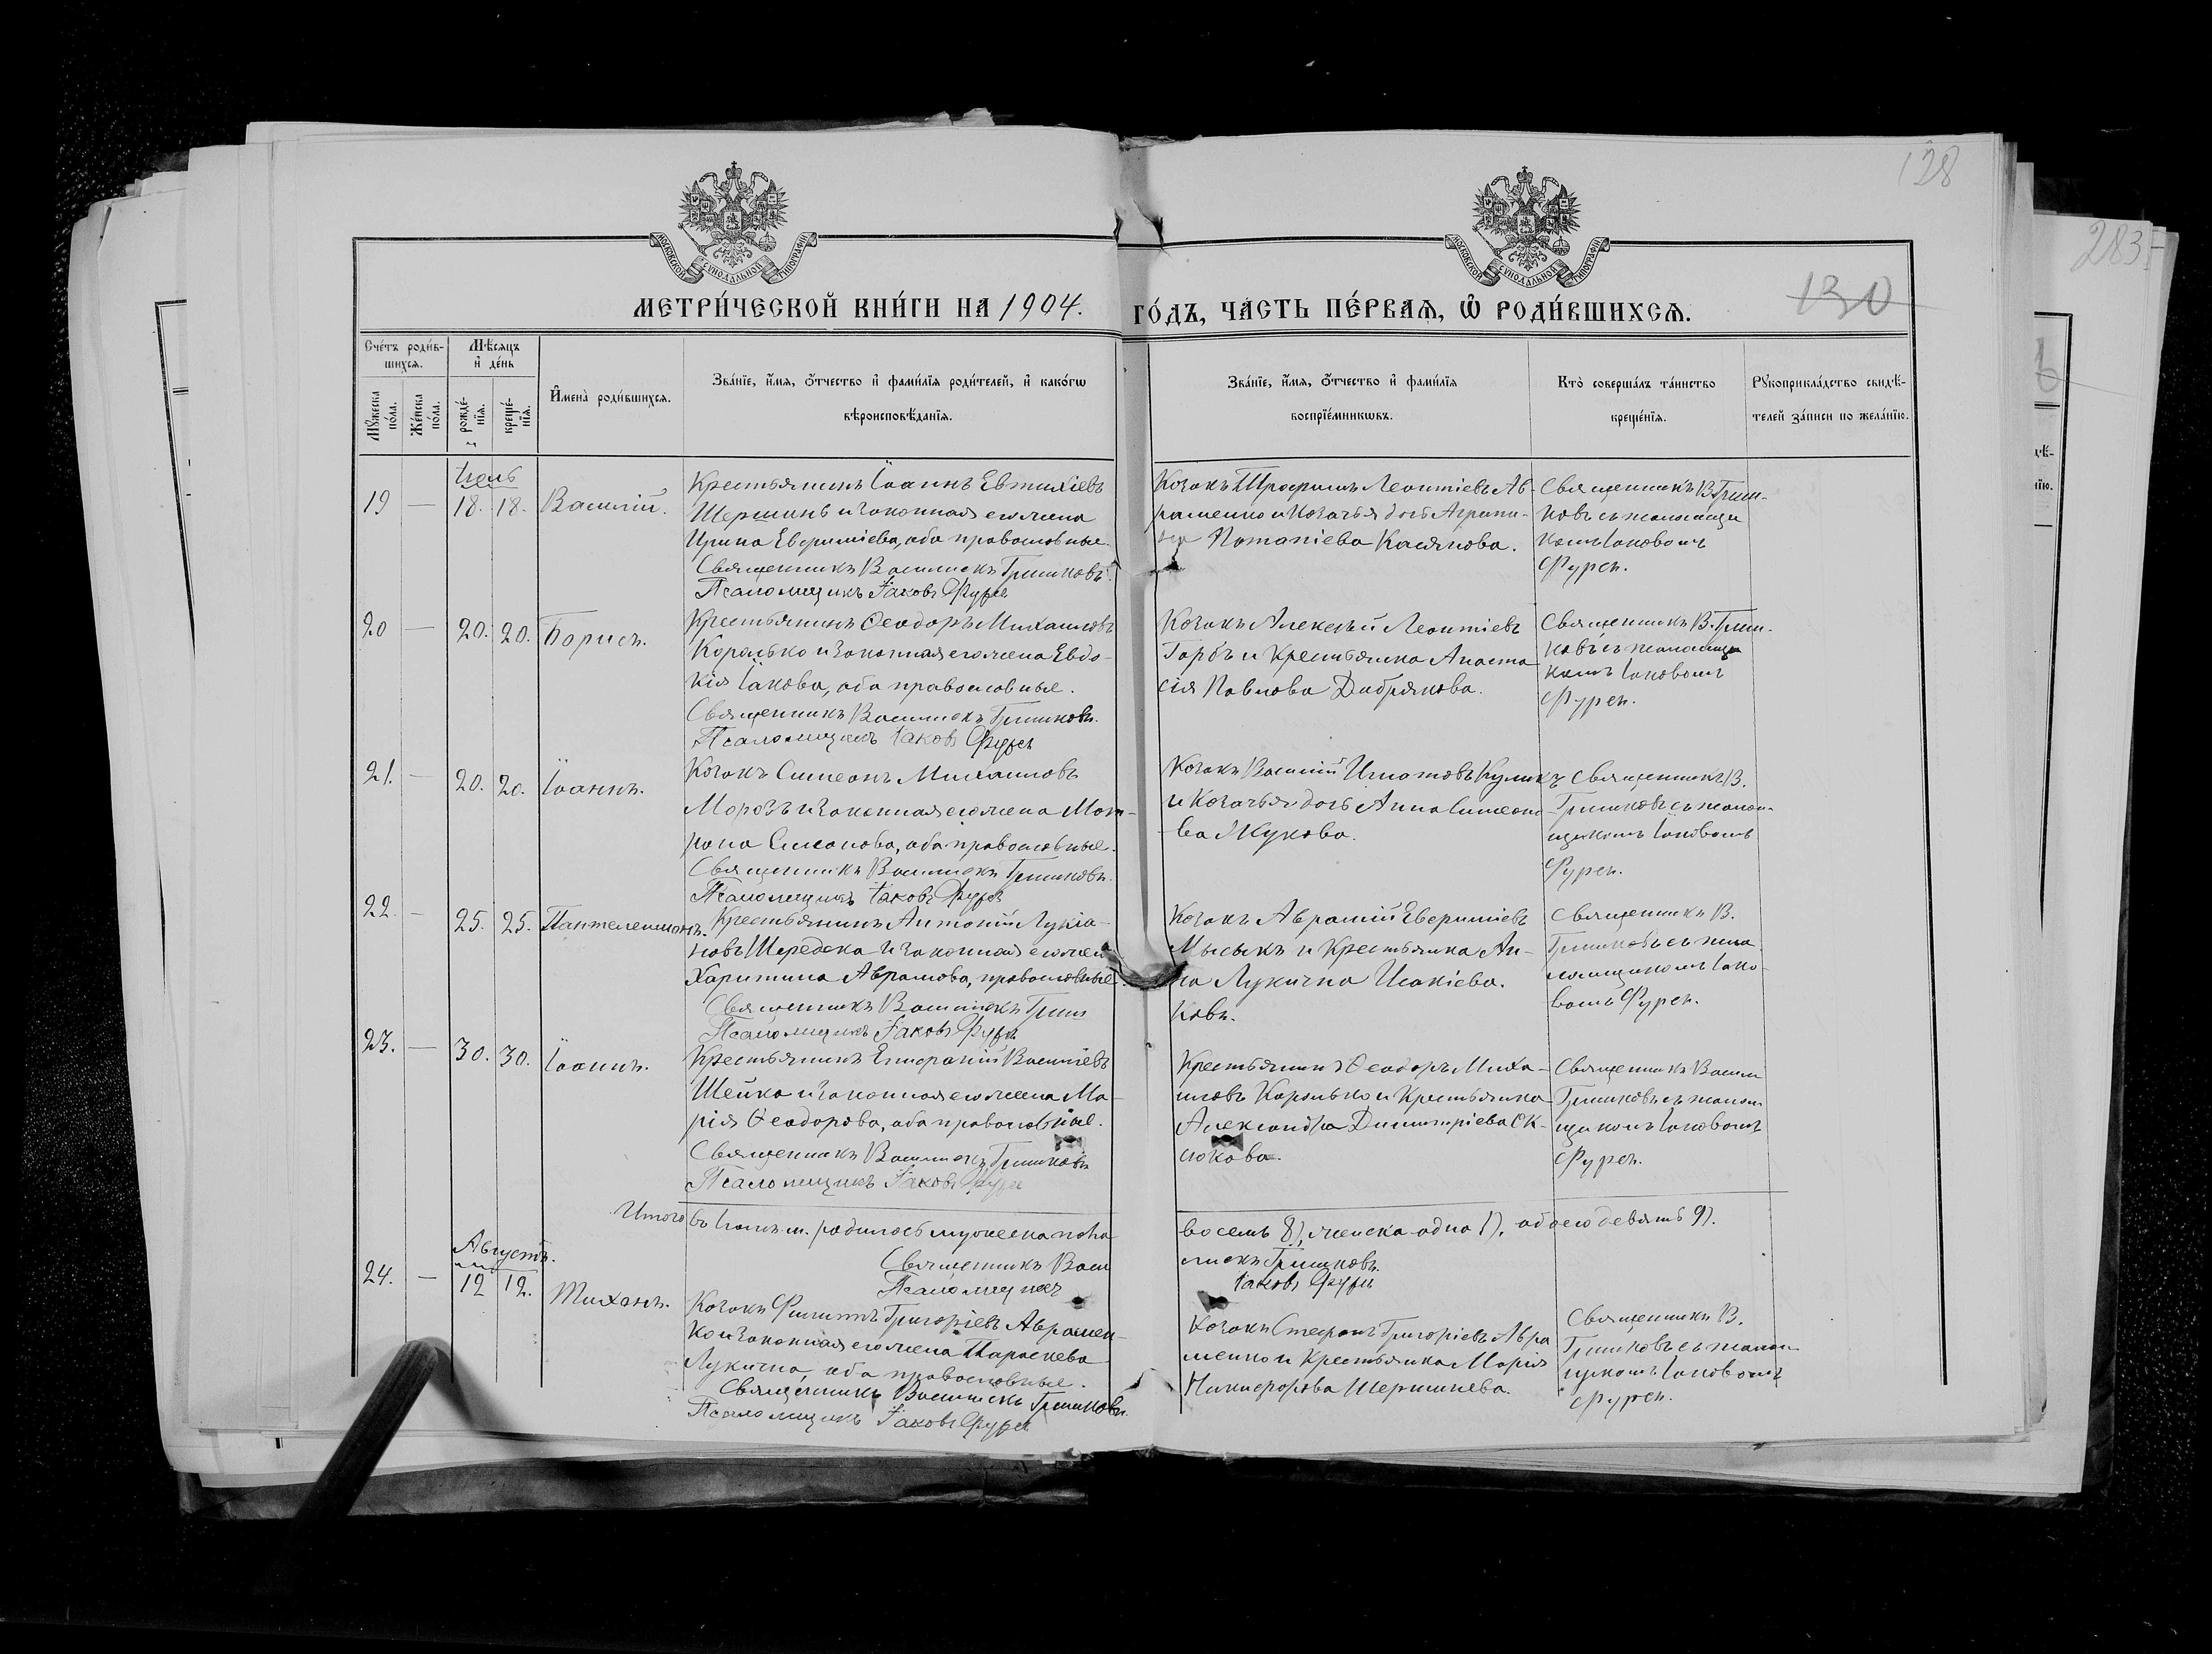 128
283
130
МОСКОВСКОЙ СУНОДАЛЬНОЙ ТИПОГРАФІИ
МОСКОВСКОЙ СУНОДАЛЬНОЙ ТИПОГРАФІИ
МЕТРИ́ЧЕСКОЙ КНИ́ГИ НА 1904. ГО́ДЪ, ЧА́СТЬ ПЕ́РВАѦ, Ѡ҆ РОДИ́ВШИХСѦ.
Сче́тъ роди́в-
шихсѧ.
Мꙋ́жеска по́ла.
Же́нска по́ла.
Мѣ́сѧцъ
и҆ де́нь
рожде́-
нїѧ.
креще́-
нїѧ.
И҆мена̀ роди́вшихсѧ.
Зва́нїе, и҆́мѧ, ѻ҆́тчество и҆ фами́лїѧ роди́телей, и҆ како́гѡ
вѣроисповѣ́данїѧ.
Зва́нїе, и҆́мѧ, ѻ҆́тчество и҆ фами́лїѧ
воспрїе́мникѡвъ.
Кто̀ соверша́лъ та́инство
креще́нїѧ.
Рꙋкоприкла́дство свидѣ́-
телей за́писи по жела́нїю.
Іюль
19 — 18. 18. Василій.
Крестьянинъ Іоаннъ Евтихіевъ
Шершинь и законная его жена
Ирина Евфиміева, оба православные.
Священникъ Василискъ Гришковъ.
Псаломщикъ Іаковъ Фурсъ
Козакъ Трофимъ Леонтіевъ Ав-
раменко и козачья дочь Агрипи-
на Потапіева Касянова.
Священникъ В. Гриш-
ковъ съ псаломщи
комъ Іаковомъ
Фурсъ.
20 — 20. 20. Борисъ.
Крестьянинъ Ѳеодоръ Михаиловъ
Королько и законная его жена Евдо-
кія Іакова, оба православные.
Священникъ Василискъ Гришковъ.
Псаломщикъ Іаковъ Фурсъ
Козакъ Алексѣй Леонтіевъ
Горбъ и крестьянка Анаста
сія Павлова Добрянова.
Священникъ В. Гриш-
ковъ съ псаломщи
комъ Іаковомъ
Фурсъ.
21. — 20. 20. Іоаннъ.
Козакъ Симеонъ Михаиловъ
Морозъ и законная его жена Мат-
рона Симонова, оба православные.
Священникъ Василискъ Гришковъ.
Псаломщикъ Іаковъ Фурсъ
Козакъ Василій Игнатовъ Куликъ
и козачья дочь Анна Симеоно
-ва Жукова.
Священникъ В.
Гришковъ съ псалом-
щикомъ Іаковомъ
Фурсъ.
22. — 25. 25. Пантелеимонъ.
Крестьянинъ Антоній Лукіа-
новъ Шередека и законная его жен
Харитина Аврамова, православные.
Священникъ Василискъ Гриш
Псаломщикъ Іаковъ Фурсъ
Козакъ Аврамій Евфиміевъ
Мысыкъ и крестьянка Ан-
на Лукична Исакіева.
ковъ.
Священникъ В.
Гришковъ съ пса
ломщикомъ Іако-
вомъ Фурсъ.
23. — 30. 30. Іоаннъ.
Крестьянинъ Епифаній Василіевъ
Шейко и законная его жена Ма-
рія Ѳеодорова, оба православные.
Священникъ Василискъ Гришковъ
Псаломщикъ Іаковъ Фурсъ
Крестьянинъ Ѳеодоръ Миха-
иловъ Королько и крестьянка
Александра Димитріева
Священникъ Васили
Гришковъ съ псалом
щикомъ Іаковомъ
Фурсъ.
Итого въ Іюлѣ м. родилось мужеска пола восемь 8), женска одна 1), обоего девять 9).
Священникъ Василискъ Гришковъ.
Псаломщикъ Іаковъ Фурсъ
Августъ.
24. — 12 12. Тихонъ.
Козакъ Филиппъ Григоріевъ Аврамен-
ко и законная его жена Параскева
Лукична, оба православные.
Священникъ Василискъ Гришковъ.
Псаломщикъ Іаковъ Фурсъ
Козакъ Стефанъ Григоріевъ Авра
менко и крестьянка Марія
Никифорова Шершнева.
Священникъ В.
Гришковъ съ псалом-
щикомъ Іаковомъ
Фурсъ.